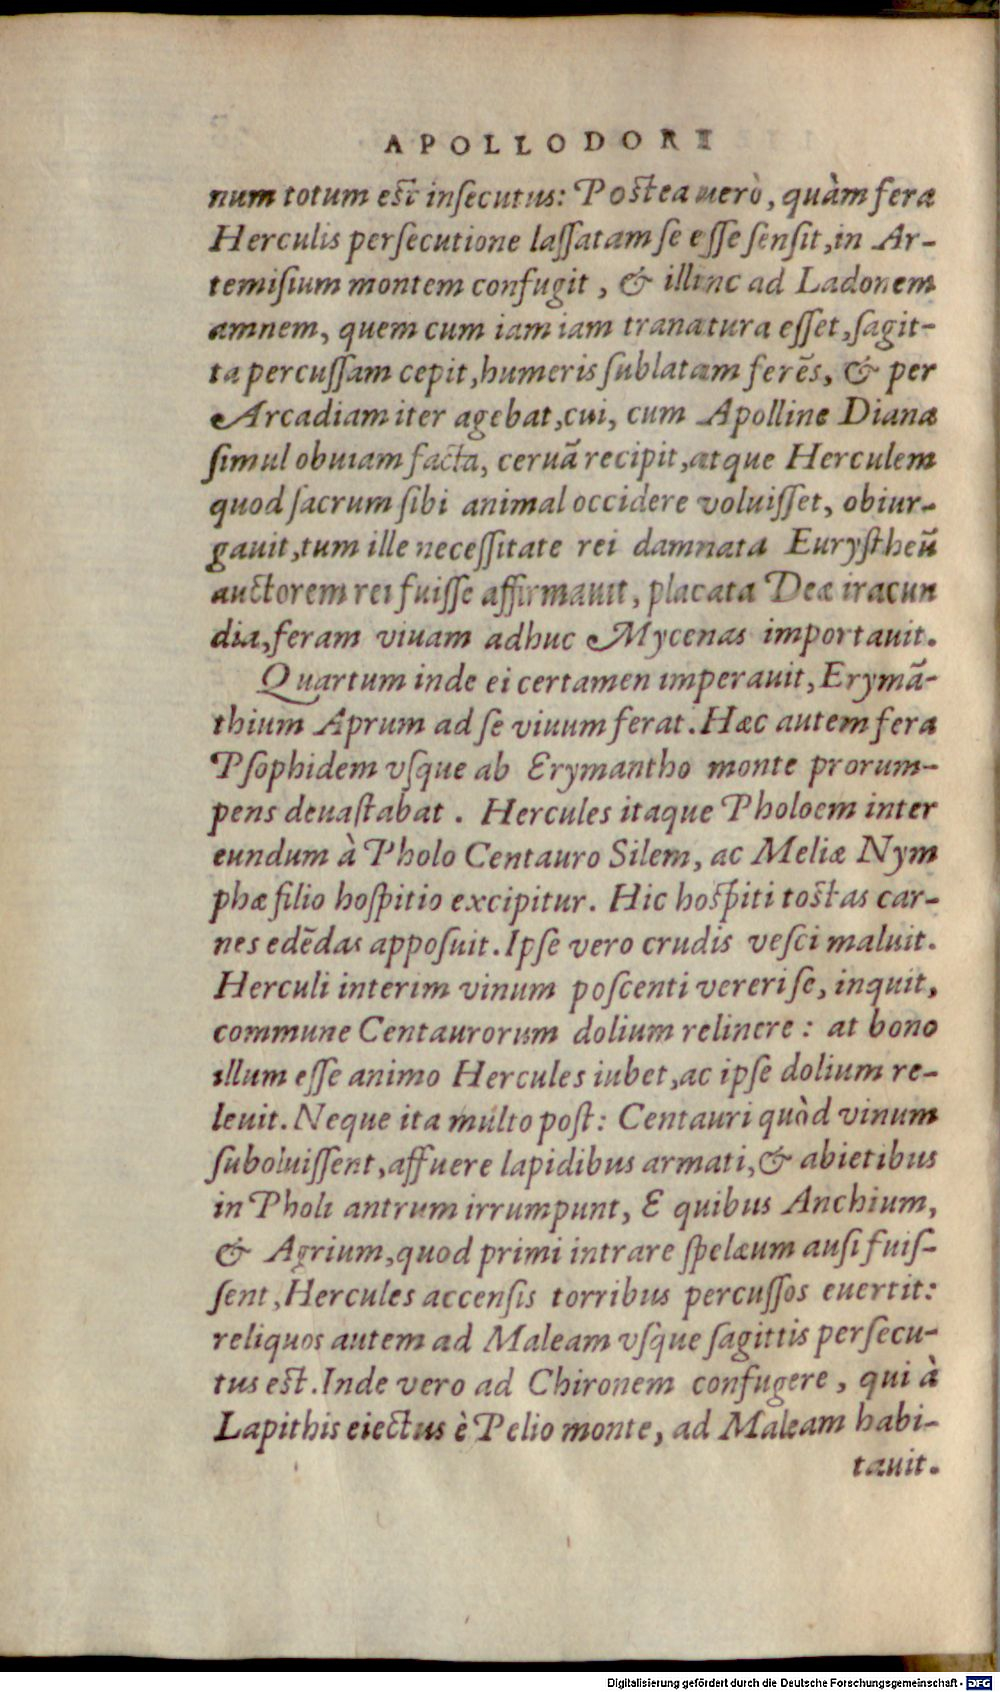 APOLLODORI
num totum est insecutus: Postea uerò, quàm fera
Herculis persecutione lassatam se esse sensit, in Ar-
temisium montem confugit, & illinc ad Ladonem
amnem, quem cum iam iam tranatura esset, sagit-
ta percussam cepit, humeris sublatam ferēs, & per
Arcadiam iter agebat, cui, cum Apolline Diana
simul obuiam facta, ceruā recipit, atque Herculem
quod sacrum sibi animal occidere voluisset, obiur-
gauit, tum ille necessitate rei damnata Eurystheū
auctorem rei fuisse affirmauit, placata Deæ iracun
dia, feram viuam adhuc Mycenas importauit.
Quartum inde ei certamen imperauit, Erymā-
thium Aprum ad se viuum ferat. Hæc autem fera
Psophidem vsque ab Erymantho monte prorum-
pens deuastabat. Hercules itaque Pholoem inter
eundum à Pholo Centauro Silem, ac Meliæ Nym
phæ filio hospitio excipitur. Hic hospiti tostas car-
nes edēdas apposuit. Ipse vero crudis vesci maluit.
Herculi interim vinum poscenti vereri se, inquit,
commune Centaurorum dolium relinere: at bono
illum esse animo Hercules iubet, ac ipse dolium re-
leuit. Neque ita multo post: Centauri quòd vinum
suboluissent, affuere lapidibus armati, & abietibus
in Pholi antrum irrumpunt, E quibus Anchium,
& Agrium, quod primi intrare spelæum ausi fuis-
sent, Hercules accensis torribus percussos euertit:
reliquos autem ad Maleam vsque sagittis persecu-
tus est. Inde vero ad Chironem confugere, qui à
Lapithis eiectus è Pelio monte, ad Maleam habi-
tauit.
Digitalisierung gefördert durch die Deutsche Forschungsgemeinschaft - DFG